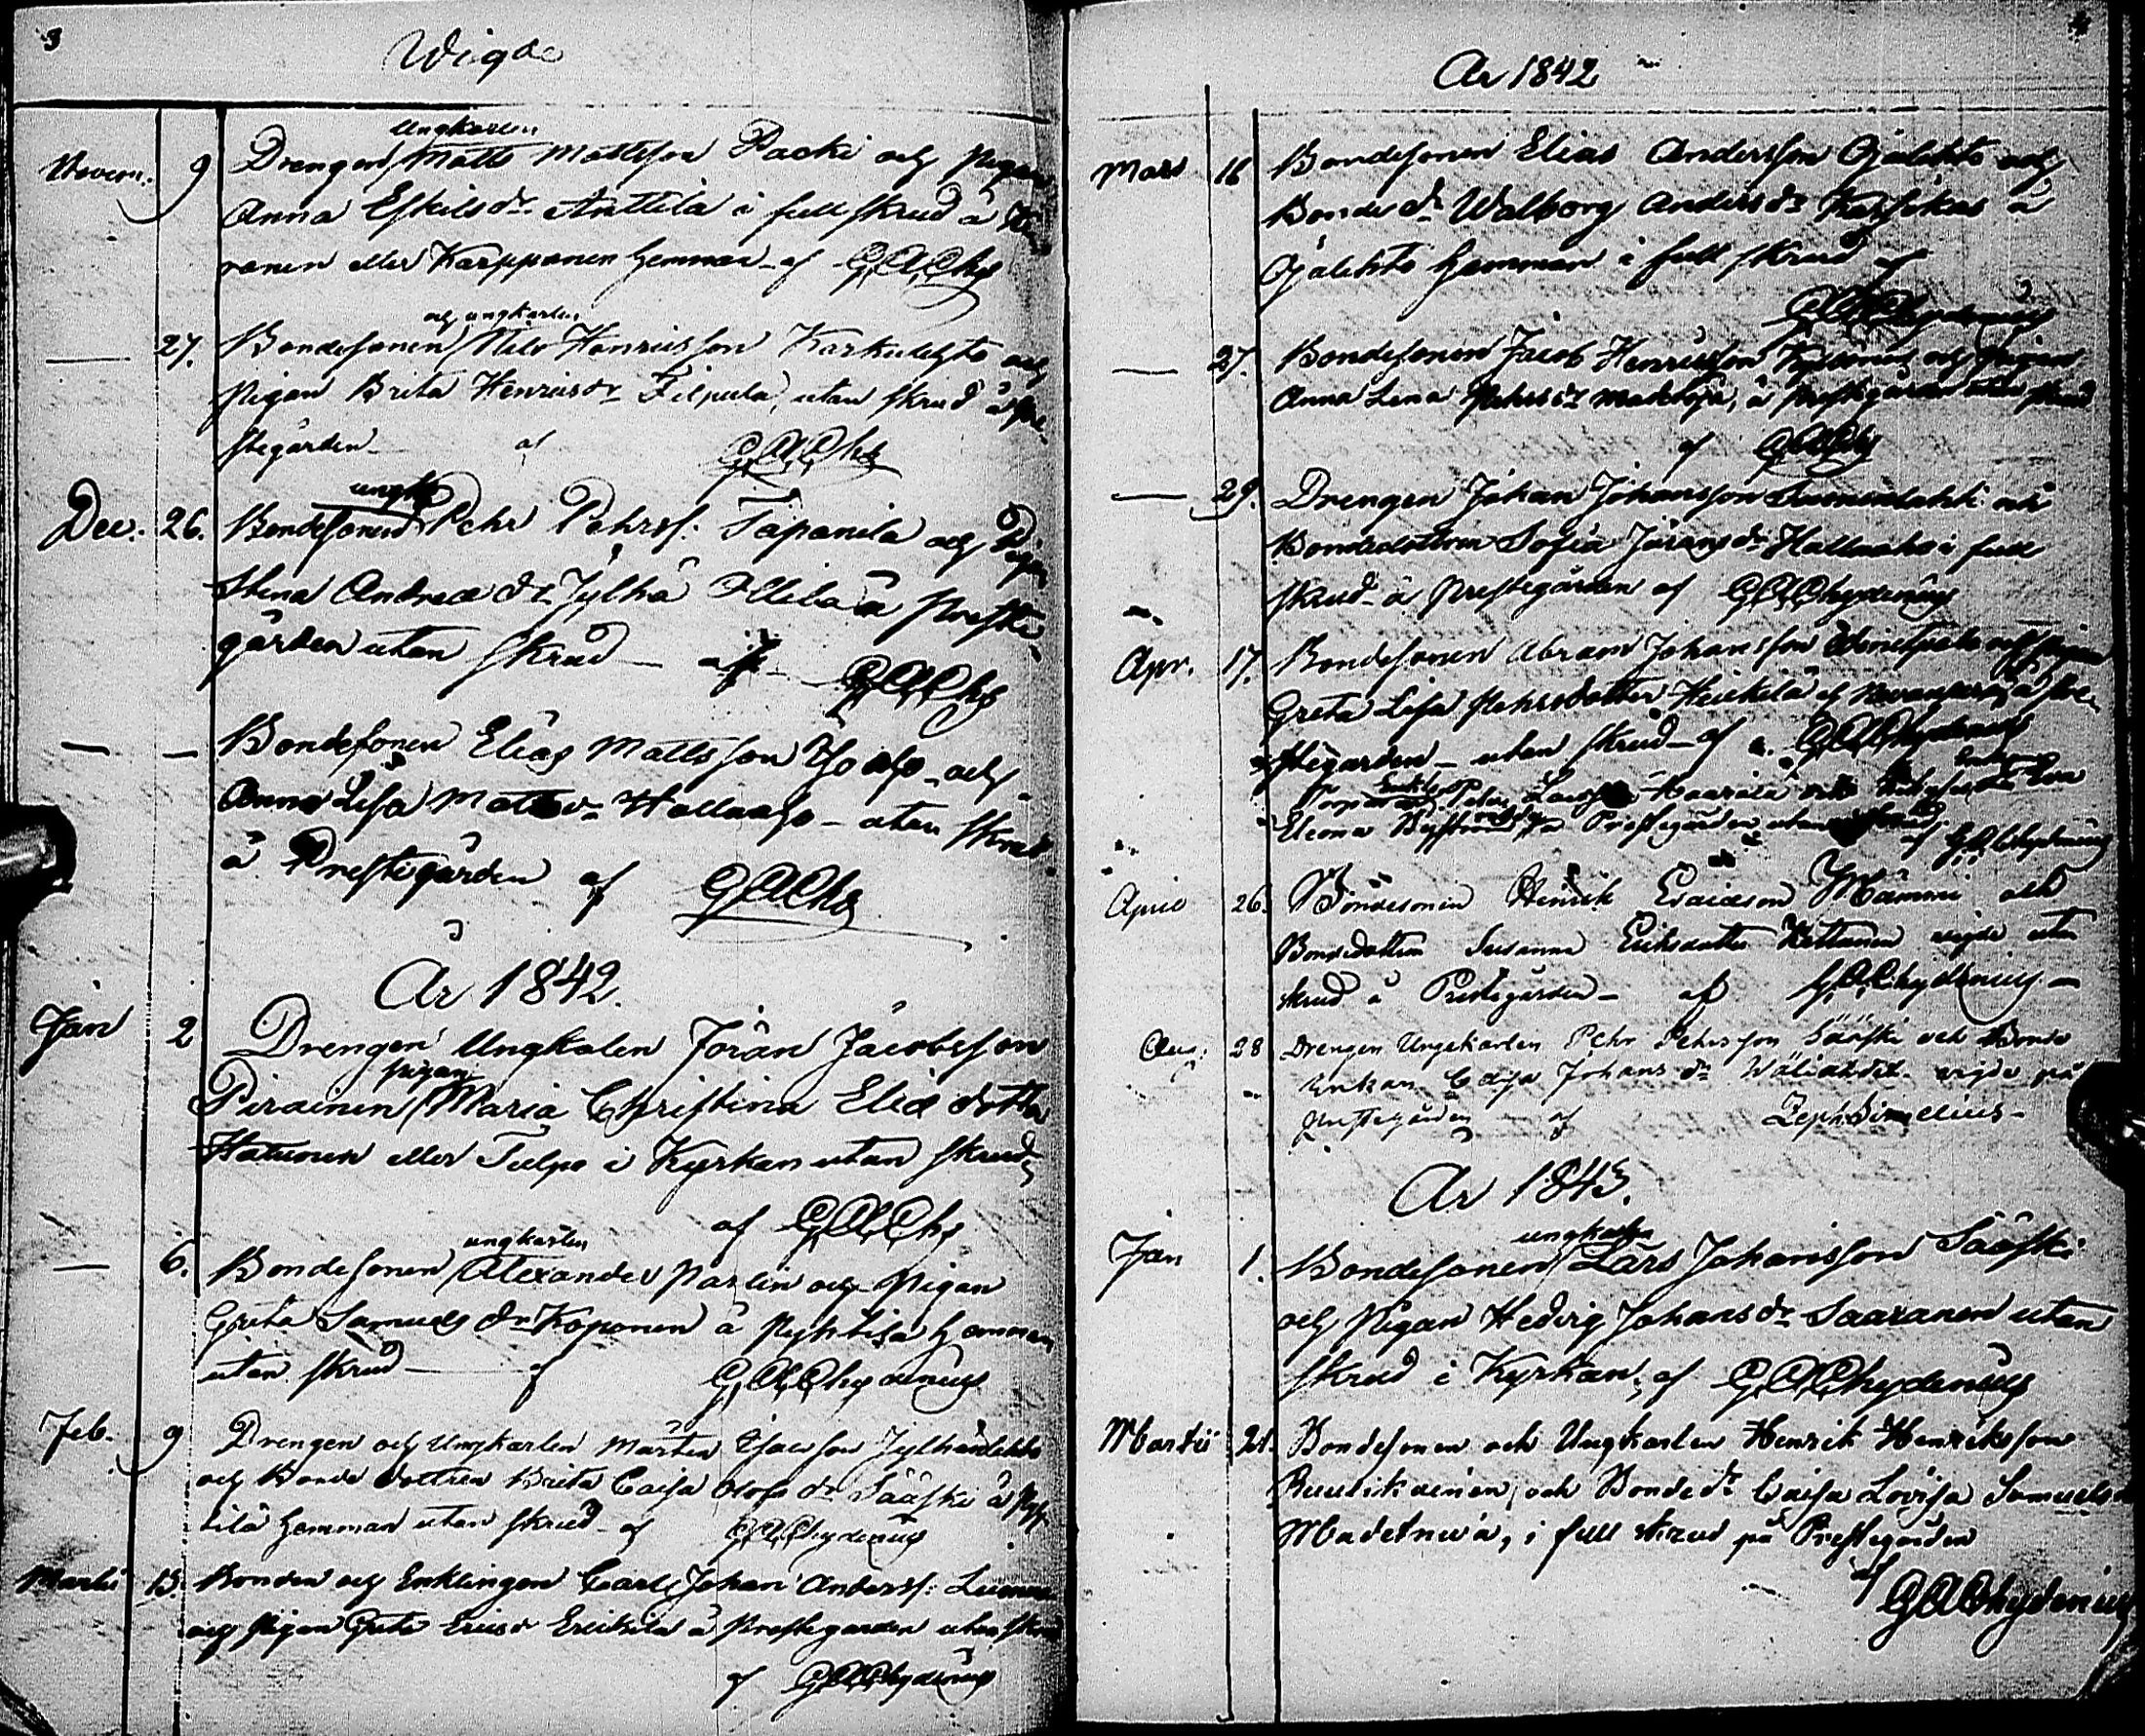 3
Wigde
Ungkarlen
Novem. 9 Drengen Matts Mattsson Packi och Pigan
Anna Eskilsdr Anttila i full skrud å
ranen eller Karpponen hemman af GAChs
och ungkarlen
— 27. Bondesonen Nils Henricsson och
Pigan Brita Henricsdr Filpula, utan skrud å Pre-
stegården af GAChs
ungk
Dec. 26. Bondesonen Pehr Pehrss. Tapanila och Pigan
Stina Andreæ dr Jylhä å Preste-
gården utan skrud — af GAChs
— — Bondesonen Elias Mattsson och
Anna Lisa Matts dr — utan skrud
å Prestegården af GAChs
År 1842.
Jan 2 Drengen Ungkalen Jöran Jacobsson
pigan
Pirainen Maria Christina Eliæ dotter
Hatunen eller Tulpo i Kyrkan utan skrud
af GAChs
ungkarlen
— 6. Bondesonen Alexander Parlin och Pigan
Greta Samuels dr Koponen å hemman
utan skrud — af GAChydenius
Feb. 9 Drengen och Ungkarlen Mårten
och Bonde dottren Brita Caisa Olofs dr Sääski å
tilä hemman utan skrud af GAChydenius
Martii 13. Bonden och Enklingen Carl Johan Anderss.
och Pigan Greta Ericsdr å Prestegården utan skrud
af GAChydenius
4
År 1842
Mars 16 Bondesonen Elias Andersson Ojalehto och
Bonde dr Walborg Anders dr å
Ojalehto hemman i full skrud af
GAChydenius
— 27. Bondesonen Jacob Henricsson och Pigan
Anna Lena Pehrs dr å Prestegården utan skrud
af GAChs
— 29. Drengen Johan Johansson och
Bondedottren Sofia Jörans dr i full
skrud å Prestegården af GAChydenius
Apr. 17. Bondesonen Abram Johansson och Pigan
Greta Lisa Pehrsdotter Heikilä af å Pre-
stegården — utan skrud — af GAChydenius
Enkl.
Peter och Eva
Eleonora å Prestegården utan skrud
af GAChydenius
April 26. Bondesonen Henrik Ericsson och
Bondedottren Susanna Eriksdotter Kettunen vigde utan
skrud å Prestegården — af GAChydenius —
Aug. 28 Drengen Ungkarlen Pehr Pehrsson Sääski och Bonde
Enkan Caisa Johans dr vigde på
Prestegården af Zeph Simelius —
År 1843.
ungkarlen
Jan 1. Bondesonen Lars Johansson Sääski
och Pigan Hedvig Johans dr Saaranen utan
skrud i Kyrkan af GAChydenius
Martii 21. Bondesonen och Ungkarlen Henrik Henriksson
och Bonde dr Caisa Lovisa Samuels dr
Madetneva, i full skrud på Prestegården
af GAChydenius